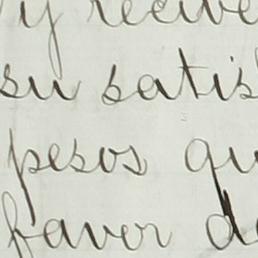 y recibe
su satis
pesos qu
favor de